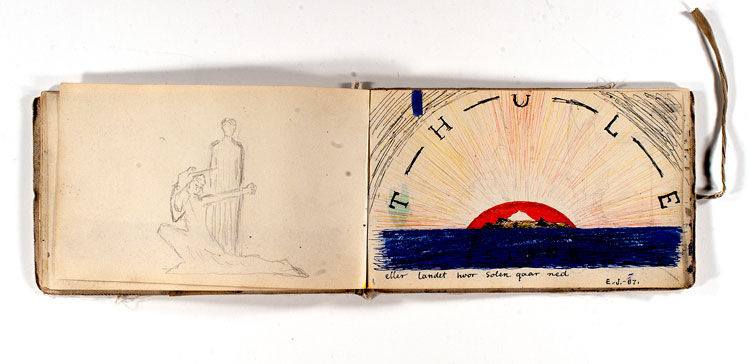 T-H-U-L-E
eller landet hvor Solen gaar ned
E.-J.-07.